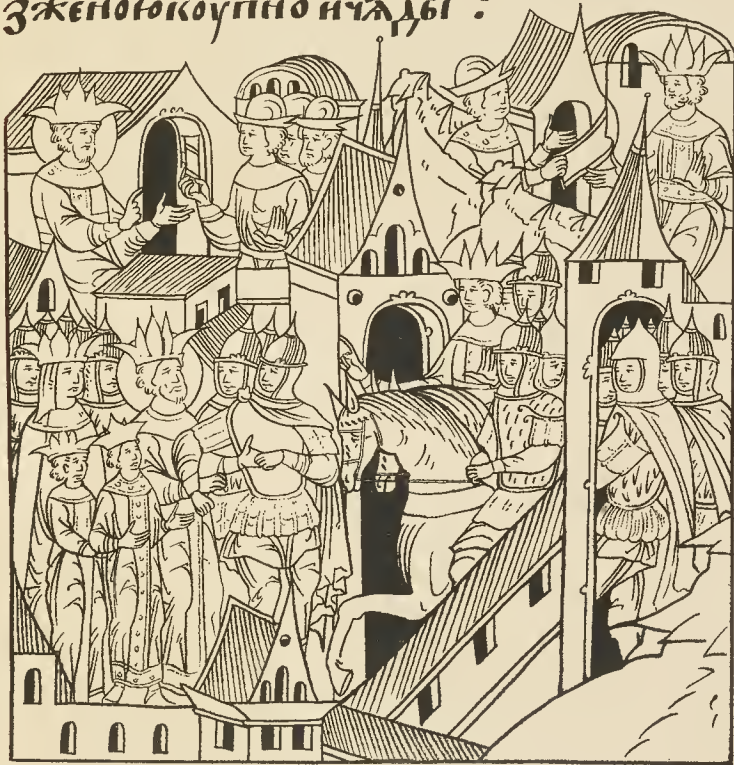 зженоюкоупно ичяды :